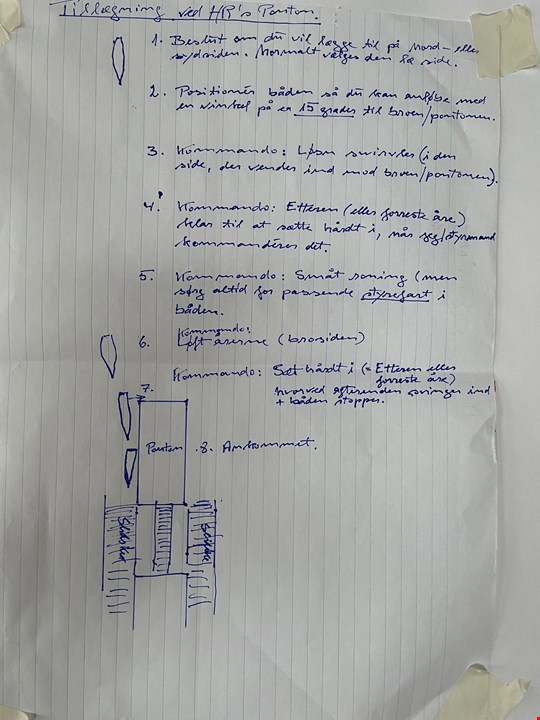 Tillægning ved HR's Ponton.
1. Beslut om du vil lægge til på Nord- eller
sydsiden. Normalt vælges den læ side.
2. Positionér båden så du kan anløbe med
en vinkel på ca 15 grader til broen/pontonen.
3. Kommando: Løsn svirvler (i den
side, der vender ind mod broen/pontonen).
4. Kommando: Etteren (eller forreste åre)
klar til at sætte hårdt i, når jeg/styrmand
kommanderer det.
5. Kommando: Småt roning (men
sørg altid for passende styrefart i
båden.
Kommando:
6. Løft årerne (brosiden)
7. Kommando: Sæt hårdt i (= Etteren eller
forreste åre)
hvorved agterenden svinger ind
+ båden stopper.
Ponton
8. Ankommet.